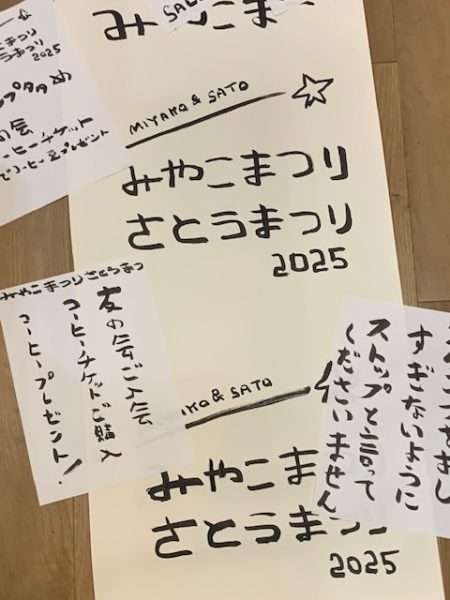 みやこまつり
MIYAKO & SATO
みやこまつり
さとうまつり
2025
まつり
まつり
2025
の会
ーヒーチケット
プレゼント
みやこまつりさとうまつ
友の会ご入会
コーヒーチケットご購入
コーヒープレゼント!
すぎないように
ストップと言って
くださいません
& SATO
みやこま
さとうまつ
2025